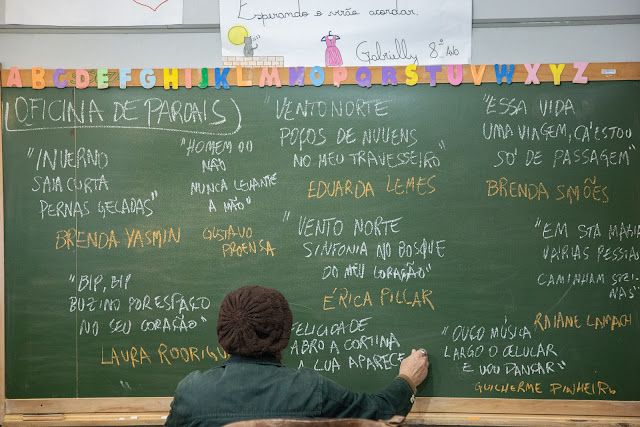 Esperando o verão acordar.
Gabrielly 8º Ano
ABCDEFGHIJKLMNOPQRSTUVWXYZ
(OFICINA DE PARDAIS)
"INVERNO
SAIA CURTA
PERNAS GELADAS"
BRENDA YASMIN
"BIP, BIP
BUZINO POR ESPAÇO
NO SEU CORAÇÃO"
LAURA RODRIGU
"HOMEM OU
NÃO
NUNCA LEVANTE
A MÃO"
GUSTAVO
PROENSA
"VENTO NORTE
POÇOS DE NUVENS
NO MEU TRAVESSEIRO"
EDUARDA LEMES
"VENTO NORTE
SINFONIA NO BOSQUE
DO MEU CORAÇÃO"
ÉRICA PILLAR
FELICIDADE
ABRO A CORTINA
A LUA APARECE
"ESSA VIDA
UMA VIAGEM, CÁ ESTOU
SÓ DE PASSAGEM"
BRENDA SMÕES
"EM STA MARIA
VÁRIAS PESSOAS
CAMINHAM
RAIANE LAMACH
"OUÇO MÚSICA
LARGO O CELULAR
E VOU DANÇAR"
GUILHERME PINHEIRO